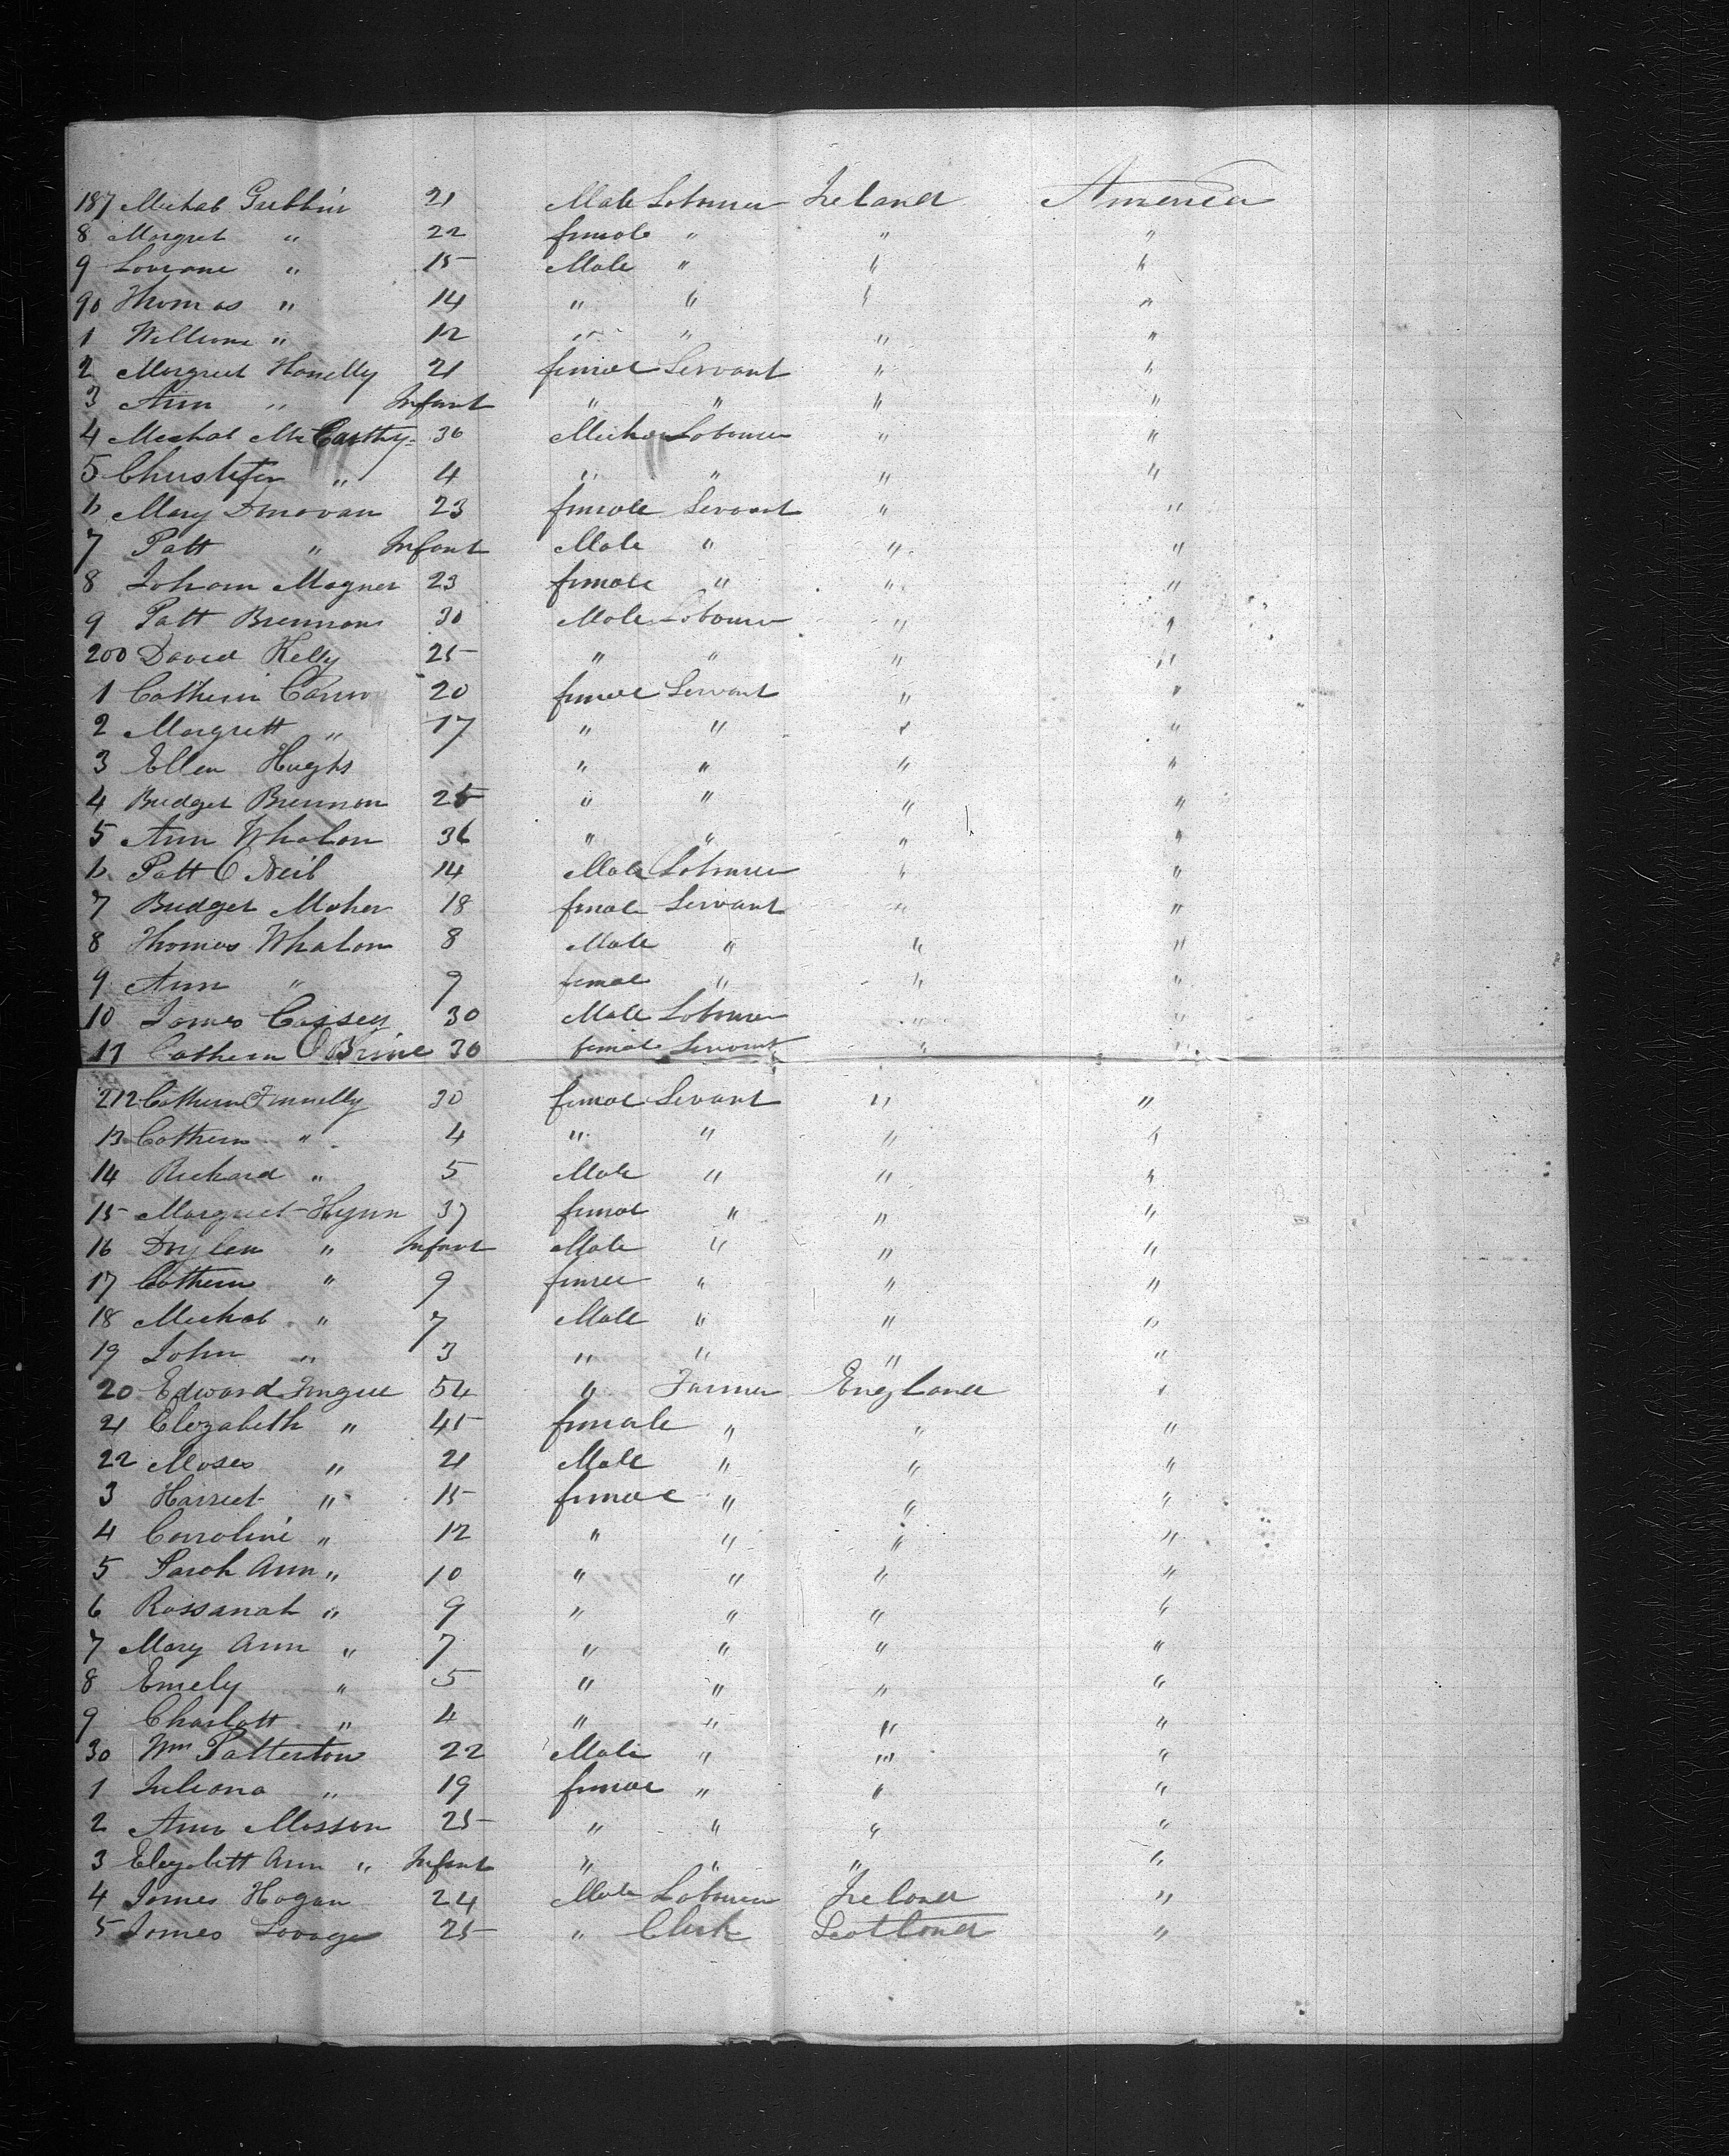 187 Michal Gubbin 21 Male Labourer Ireland America
8 Margret " 22 female " " "
9 " 15 Male " " "
90 Thomas " 14 " " " "
1 William " 12 " " " "
2 Margret 21 female Servant " "
3 Ann " Infant " " " "
4 Michal McCarthy 36 Labourer " "
5 Christefer " 4 " " " "
6 Mary Donovan 23 female Servant " "
7 Patt " Infant Male " " "
8 Johann Magner 23 female " " "
9 Patt Brennan 30 Male Labourer " "
200 David Kelly 25 " " " "
1 Cathern 20 female Servant " "
2 Margrett " 17 " " " "
3 Ellen Hughs " " " "
4 Bridget Brennan 25 " " " "
5 Ann Whalon 36 " " " "
6 Patt O Neil 14 Male Labourer " "
7 Bridget Maher 18 female Servant " "
8 Thomas Whalon 8 Male " " "
9 Ann " 9 female " " "
10 James Cassey 30 Male Labourer " "
11 Cathern O Brine 30 female Servant " "
212 Cathern Finnelly 30 female Servant " "
13 Cathern " 4 " " " "
14 Richard " 5 Male " " "
15 Margret Flynn 37 female " " "
16 " Infant Male " " "
17 Cathern " 9 female " " "
18 Michal " 7 Male " " "
19 John " 3 " " " "
20 Edward 54 " Farmer England "
21 Elezabeth " 45 female " " "
22 Moses " 21 Male " " "
3 Harriet " 15 female " " "
4 Carroline " 12 " " " "
5 Sarah Ann " 10 " " " "
6 Rossanah " 9 " " " "
7 Mary Ann " 7 " " " "
8 Emely " 5 " " " "
9 Charlott " 4 " " " "
30 Wm Patterton 22 Male " " "
1 Juliana " 19 female " " "
2 Ann Masson 25 " " " "
3 Elezabett Ann " Infant " " " "
4 James Hogan 24 Male Labourer Ireland "
5 James Savage 25 " Clerk Scotland "